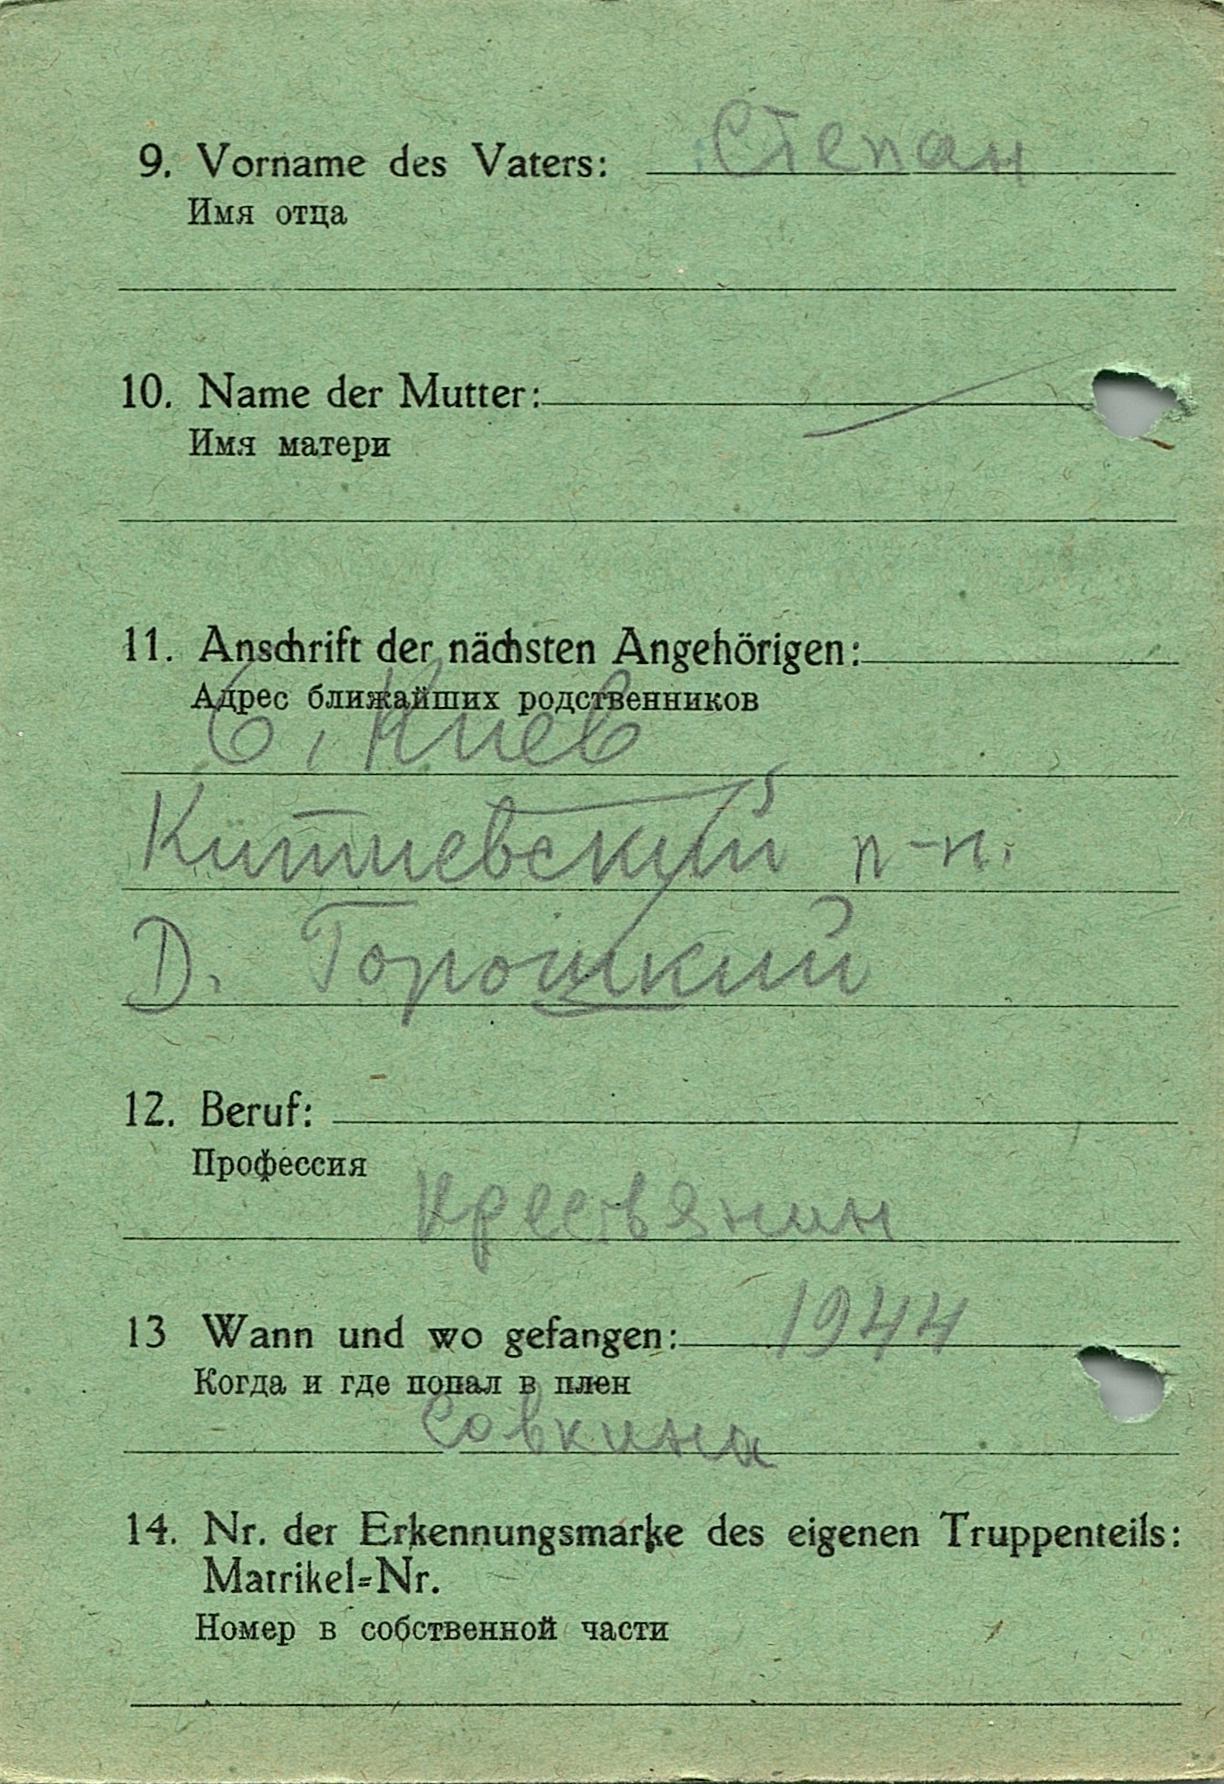 9. Vorname des Vaters: Степан
Имя отца
10. Name der Mutter:
Имя матери
11. Anschrift der nächsten Angehörigen:
Адрес ближайших родственников
Киев
р-н.
Д. Горошкий
12. Beruf:
Профессия
крестьянин
13 Wann und wo gefangen: 1944
Когда и где попал в плен
Совкина
14. Nr. der Erkennungsmarke des eigenen Truppenteils:
Matrikel=Nr.
Номер в собственной части